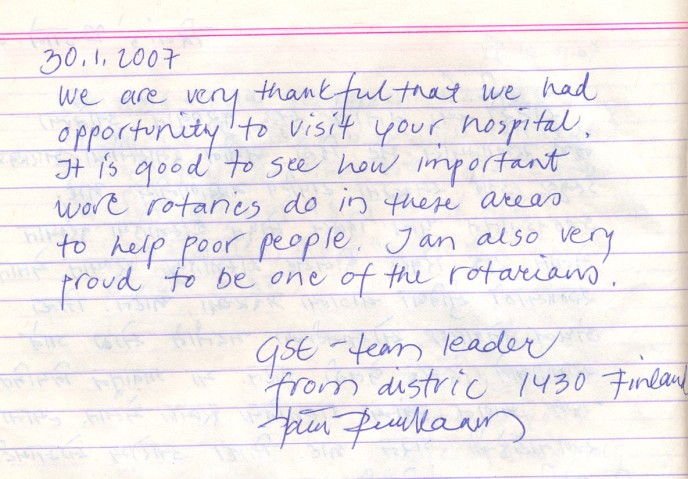 30.1.2007
We are very thankful that we had
opportunity to visit your hospital.
It is good to see how important
work rotaries do in these areas
to help poor people. I am also very
proud to be one of the rotarians.
GSE - team leader
from distric 1430 Finland